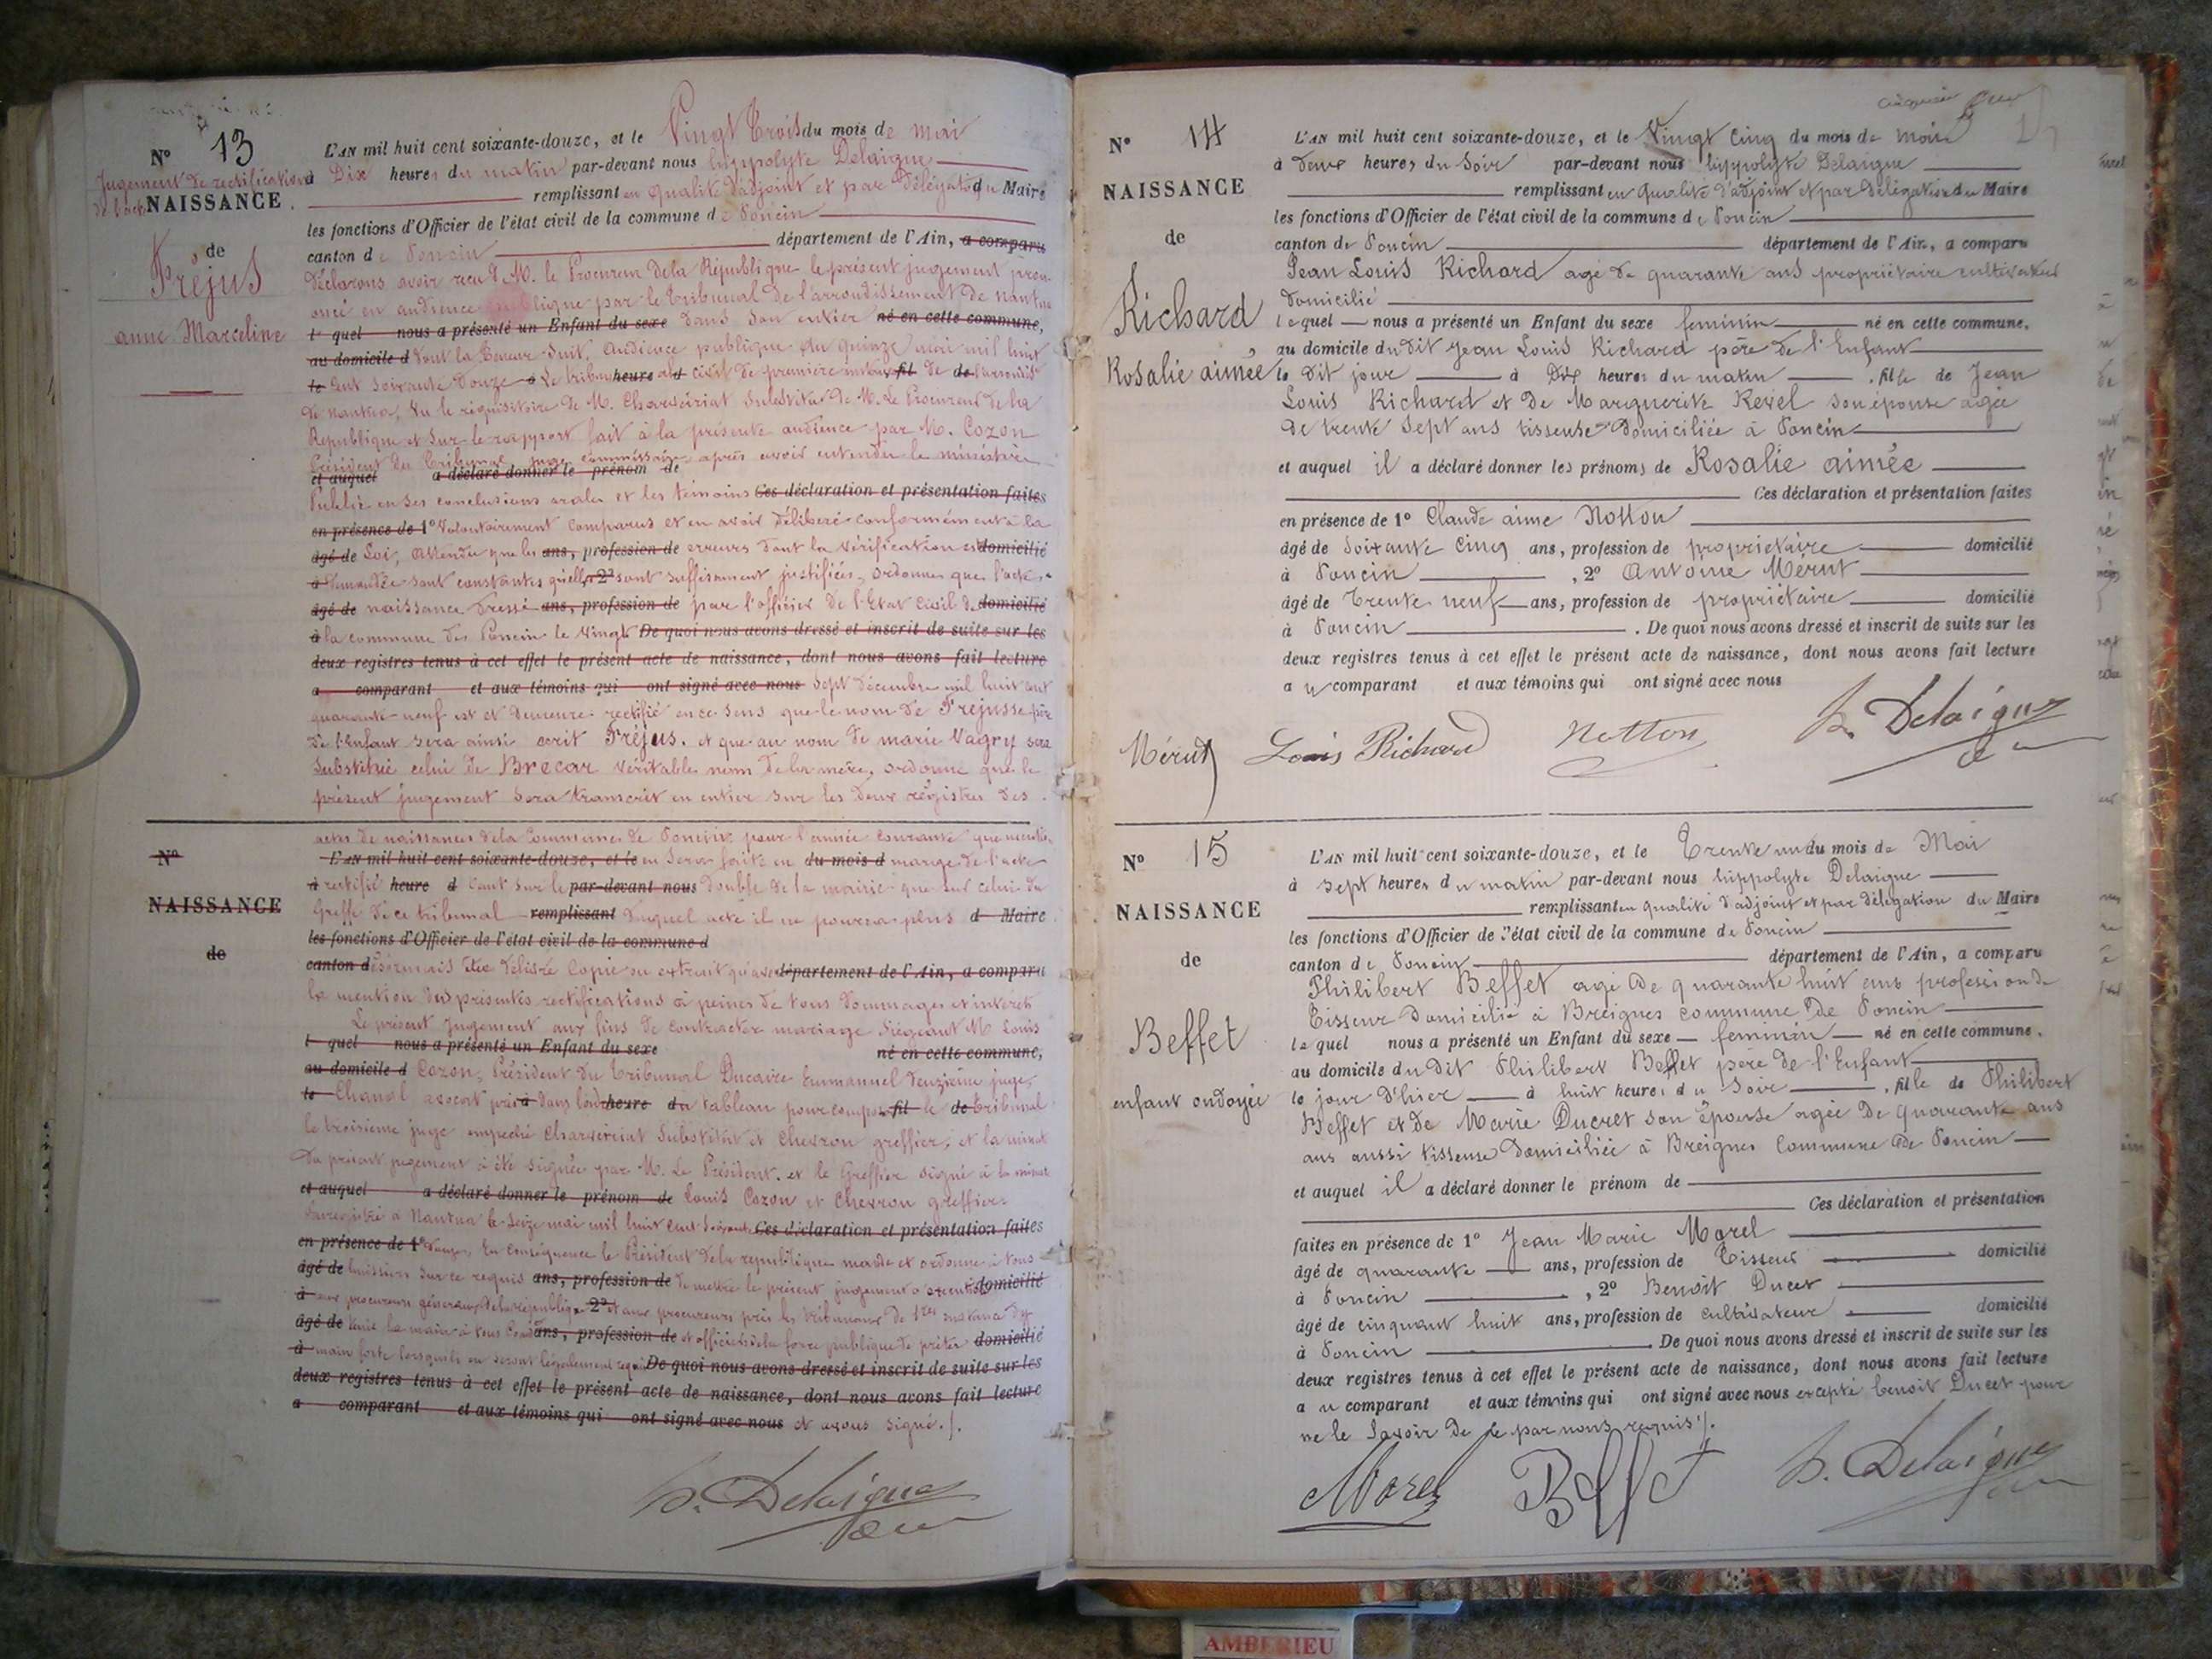 Nº 13
Jugement de rectification
de l'acte
NAISSANCE
de
Fréjus
anne Marceline
L'AN mil huit cent soixante-douze, et le Vingt Trois du mois de mai
à Dix heures du matin par-devant nous hippolyte Delaigue
remplissant en qualité d'adjoint et par délégation du Maire
les fonctions d'Officier de l'état civil de la commune de Poncin
canton de Poncin département de l'Ain, a comparu
Déclarons avoir reçu de M. le Procureur de la République le présent jugement pron-
oncé en audience publique par le Tribunal de l'arrondissement de Nantua
l quel nous a présenté un Enfant du sexe dans son entier né en cette commune,
au domicile d dont la teneur suit, audience publique du quinze mai mil huit
le cent soixante douze à Le tribunal heure d civil de première instance fil de de l'arrondist
de nantua, Vu le réquisitoire de M. Charvériat Substitut de M. Le Procureur de la
République et sur le rapport fait à la présente audience par M. Cozon
Président du Tribunal juge commissaire après avoir entendu le ministère
et auquel a déclaré donner le prénom de
Public en ses conclusions orales et les témoins Ces déclaration et présentation faites
en présence de 1º Volontairement comparus et en avoir délibéré conformément à la
âgé de Loi, Attendu que les ans, profession de erreurs dont la vérification est domicilié
à demandée sont constantes qu'elles 2º sont suffisament justifiées, ordonne que l'acte de
âgé de naissance dressé ans, profession de par l'officier de l'Etat civil de domicilié
à la commune de Poncin le Vingt De quoi nous avons dressé et inscrit de suite sur les
deux registres tenus à cet effet le présent acte de naissance, dont nous avons fait lecture
a comparant et aux témoins qui ont signé avec nous sept Décembre mil huit cent
quarante-neuf est et demeure rectifié en ce sens que le nom de Frejusse père
de l'Enfant sera ainsi écrit Fréjus. et que au nom de marie Vagry sera
substitué celui de Brecar véritable nom de la mère, ordonne que le
présent jugement sera transcrit en entier sur les deux régistres des
actes de naissances de la Commune de Poncin pour l'année courante que mention
Nº
L'AN mil huit cent soixante-douze, et le en sera faite en du mois d marge de l'acte
à rectifié heure d tant sur le par-devant nous double de la mairie que sur celui du
NAISSANCE
Greffe de ce tribunal remplissant duquel acte il ne pourra plus d Maire
les fonctions d'Officier de l'état civil de la commune d
de
canton d désormais être délivré Copie ou extrait qu'avec département de l'Ain, a comparu
la mention des présentes rectifications à peines de tous dommages et intérêts
Le présent Jugement aux fins de contracter mariage Siégeant M Louis
l quel nous a présenté un Enfant du sexe né en cette commune,
au domicile d Cozon, Président du Tribunal Ducaire Emmanuel deuxième juge,
le Chanal avocat pris à dans l'ordre heure d du tableau pour composer fil le de tribunal
le troisième juge empeché Charvériat Substitut et Chevron greffier, et la minute
du présent jugement à été signée par M. Le Président et le Greffier signé à la minute
et auquel a déclaré donner le prénom de Louis Cozon et Chevron greffier.
Enregistré a Nantua le Seize mai mil huit cent soixante Ces déclaration et présentation faites
en présence de 1º Douze, En conséquence le Président de la republique mande et ordonne à tous
âgé de huissiers sur ce requis ans, profession de de mettre le présent jugement à execution domicilié
à aux procureurs généraux de la république 2º et aux procureurs près les tribunaux de 1ère instance d'y
âgé de tenir la main à tous Comdts ans, profession de et officiers de la force publique de prêter domicilié
à main forte lorsqu'ils en seront légalement requis De quoi nous avons dressé et inscrit de suite sur les
deux registres tenus à cet effet le présent acte de naissance, dont nous avons fait lecture
a comparant et aux témoins qui ont signé avec nous et avons signé./.
h. Delaigue
Nº 14
NAISSANCE
de
Richard
Rosalie aimée
L'AN mil huit cent soixante-douze, et le Vingt Cinq du mois de Mai
à deux heures du Soir par-devant nous hippolyte Delaigue
remplissant en qualité d'adjoint et par délégation du Maire
les fonctions d'Officier de l'état civil de la commune de Poncin
canton de Poncin département de l'Ain, a comparu
Jean Louis Richard agé de quarante ans propriétaire cultivateur
domicilié
lequel nous a présenté un Enfant du sexe feminin né en cette commune,
au domicile du dit Jean Louis Richard père de l'Enfant
le dit jour à Dix heures du matin , fille de Jean
Louis Richard et de Marguerite Revel son épouse agée
de trente sept ans tisseuse domiciliée à Poncin
et auquel il a déclaré donner les prénoms de Rosalie aimée
Ces déclaration et présentation faites
en présence de 1º Claude aimé Notton
âgé de Soixante Cinq ans, profession de propriétaire domicilié
à Poncin , 2º Antoine Mérut
âgé de Trente neuf ans, profession de propriétaire domicilié
à Poncin . De quoi nous avons dressé et inscrit de suite sur les
deux registres tenus à cet effet le présent acte de naissance, dont nous avons fait lecture
au comparant et aux témoins qui ont signé avec nous
Mérut Louis Richard Notton h. Delaigue
Nº 15
NAISSANCE
de
Beffet
enfant ondoyée
L'AN mil huit cent soixante-douze, et le Trente un du mois de Mai
à sept heures du matin par-devant nous hippolyte Delaigue
remplissant en qualité d'adjoint et par délégation du Maire
les fonctions d'Officier de l'état civil de la commune de Poncin
canton de Poncin département de l'Ain, a comparu
Philibert Beffet agé de quarante huit ans profession de
Tisseur domicilié à Breignes commune de Poncin
lequel nous a présenté un Enfant du sexe feminin né en cette commune.
au domicile du dit Philibert Beffet pere de l'Enfant
le jour d'hier à huit heures du Soir , fille de Philibert
Beffet et de Marie Ducret son épouse agée de quarante ans
ans aussi tisseuse domiciliée à Breignes Commune de Poncin
et auquel il a déclaré donner le prénom de
Ces déclaration et présentation
faites en présence de 1º Jean Marie Morel
âgé de quarante ans, profession de Tisseur domicilié
à Poncin , 2º Benoît Ducet
âgé de cinquant huit ans, profession de cultivateur domicilié
à Poncin . De quoi nous avons dressé et inscrit de suite sur les
deux registres tenus à cet effet le présent acte de naissance, dont nous avons fait lecture
au comparant et aux témoins qui ont signé avec nous excepté benoit Ducet pour
ne le Savoir de ce par nous requis /.
Morel Beffet h. Delaigue
AMBERIEU